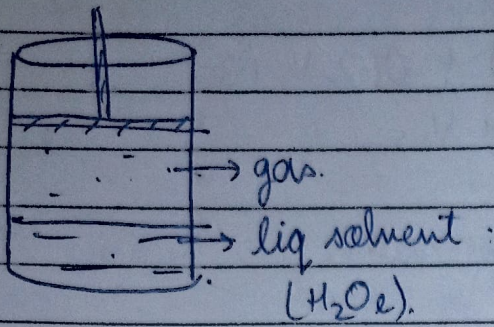 → gas.
→ liq solvent :
(H₂Oe).